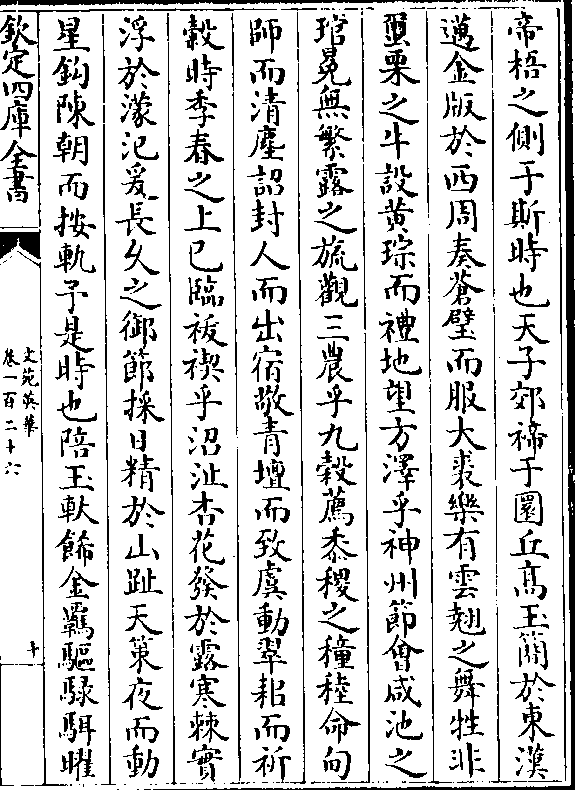 帝梧之側于斯時也天子郊禘于圜丘髙玉簡於東漢
邁金版於西周奏蒼璧而服大裘樂有雲翹之舞牲非
蠒栗之牛設黄琮而禮地望方澤乎神州節㑹咸池之
琯冕無繁露之旒觀三農乎九榖薦黍稷之穜稑命甸
師而清塵詔封人而出宿敞青壇而致虔動翠耜而祈
榖時季春之上巳臨袚禊乎沼沚杏花發於露寒棘實
浮於濛汜爰長久之御節採日精於山趾天策夜而動
星鈎陳朝而按軌于是時也陪玉軑餙金羈驅騄駬曜
欽定四庫全書
文苑英華
卷一百二十六
十